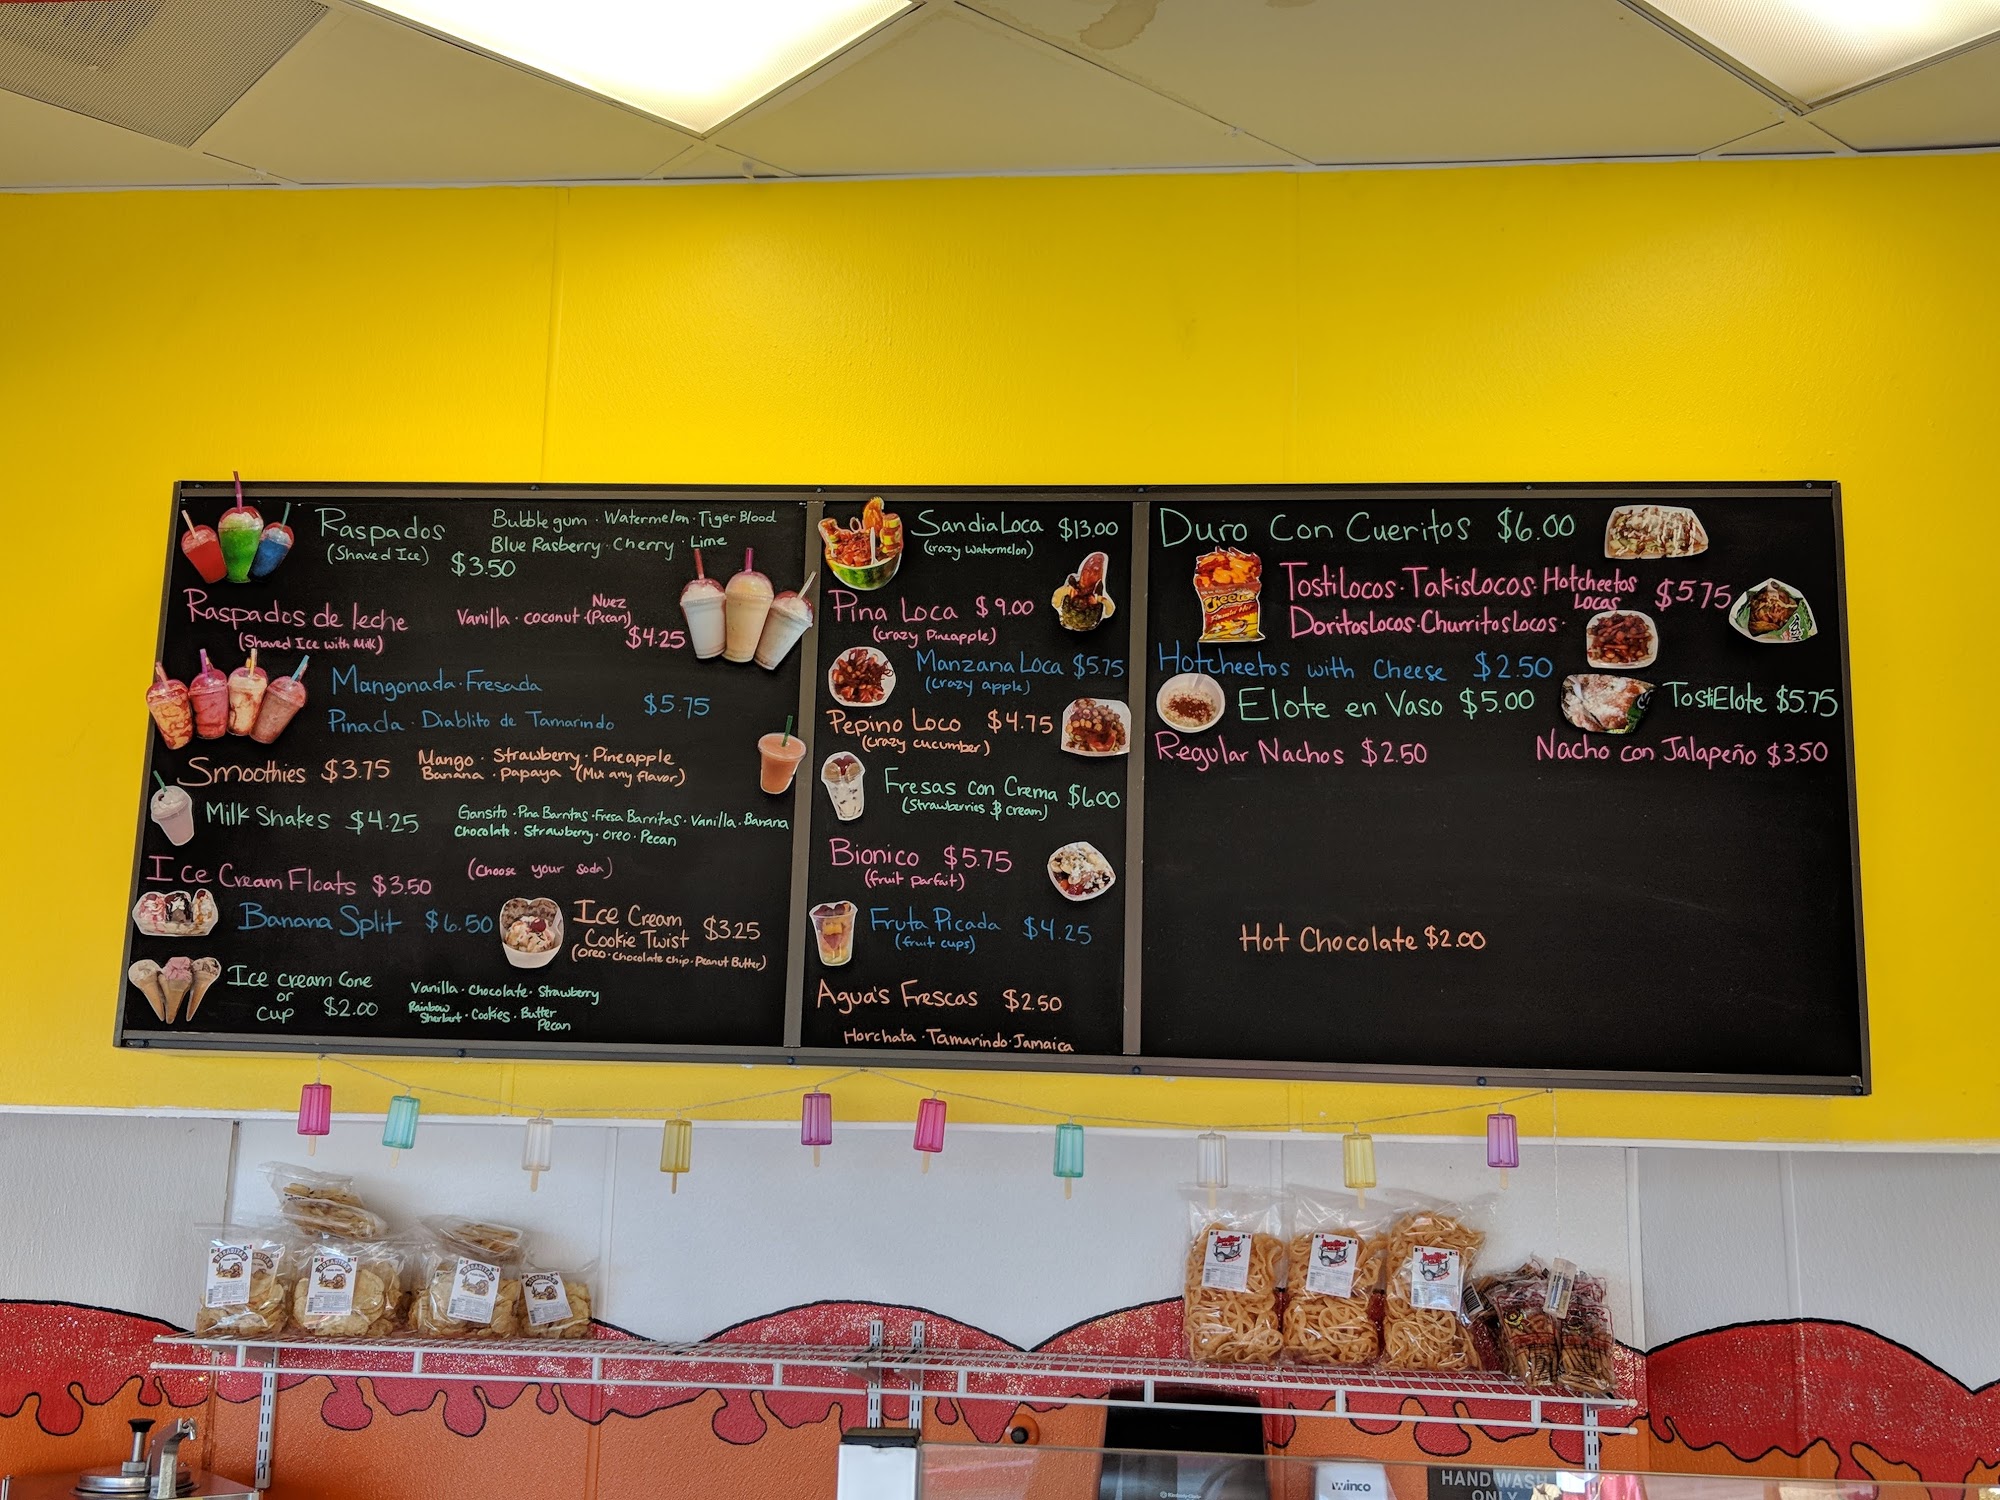 Raspados
(Shaved Ice)
$3.50
Bubblegum · Watermelon · Tiger Blood
Blue Rasberry · Cherry · Lime
Raspados de leche
(Shaved Ice with Milk)
Vanilla · coconut · Nuez (Pecan)
$4.25
Mangonada · Fresada
Pinada · Diablito de Tamarindo
$5.75
Smoothies $3.75
Mango · Strawberry · Pineapple
Banana · Papaya (Mix any flavor)
Milk Shakes $4.25
Gansito · Pina Barritas · Fresa Barritas · Vanilla · Banana
Chocolate · Strawberry · Oreo · Pecan
Ice Cream Floats $3.50
(Choose your soda)
Banana Split $6.50
Ice Cream
Cookie Twist
$3.25
(Oreo · Chocolate chip · Peanut Butter)
Ice cream Cone
or
Cup
$2.00
Vanilla · Chocolate · Strawberry
Rainbow
Sherbart · Cookies · Butter
Pecan
Sandia Loca $13.00
(crazy watermelon)
Pina Loca $9.00
(crazy Pineapple)
Manzana Loca $5.75
(crazy apple)
Pepino Loco $4.75
(crazy cucumber)
Fresas con Crema $6.00
(Strawberries & cream)
Bionico $5.75
(fruit parfait)
Fruta Picada $4.25
(fruit cups)
Agua's Frescas $2.50
Horchata · Tamarindo · Jamaica
Duro Con Cueritos $6.00
Cheetos
TostiLocos · TakisLocos · Hotcheetos
Locas
$5.75
DoritosLocos · ChurritosLocos ·
Hotcheetos with Cheese $2.50
Elote en Vaso $5.00
TostiElote $5.75
Regular Nachos $2.50
Nacho con Jalapeño $3.50
Hot Chocolate $2.00
winco
HAND WASH
ONLY